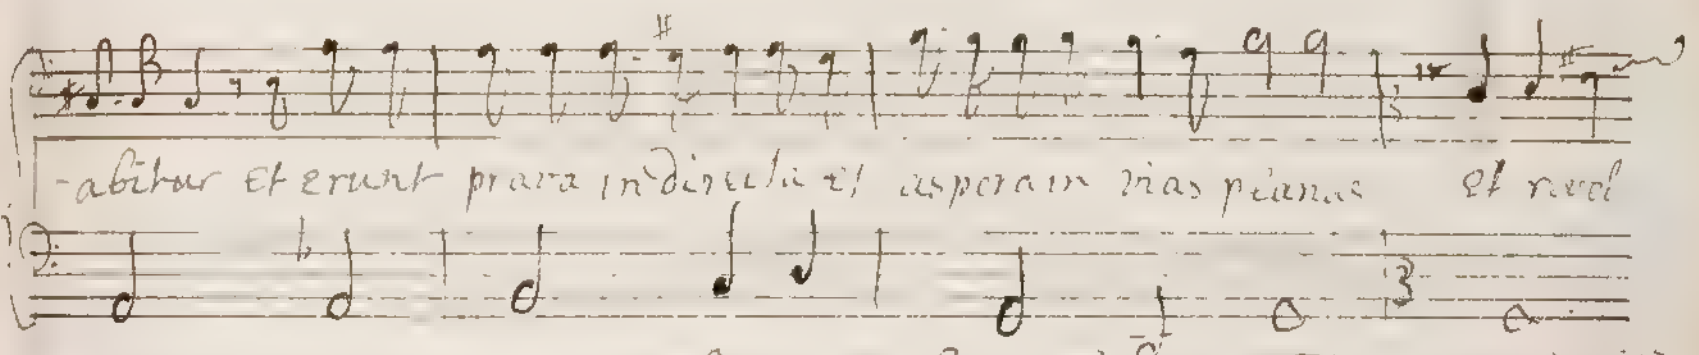 -abitur Et erunt prava in directa et asperam vias planas et revel